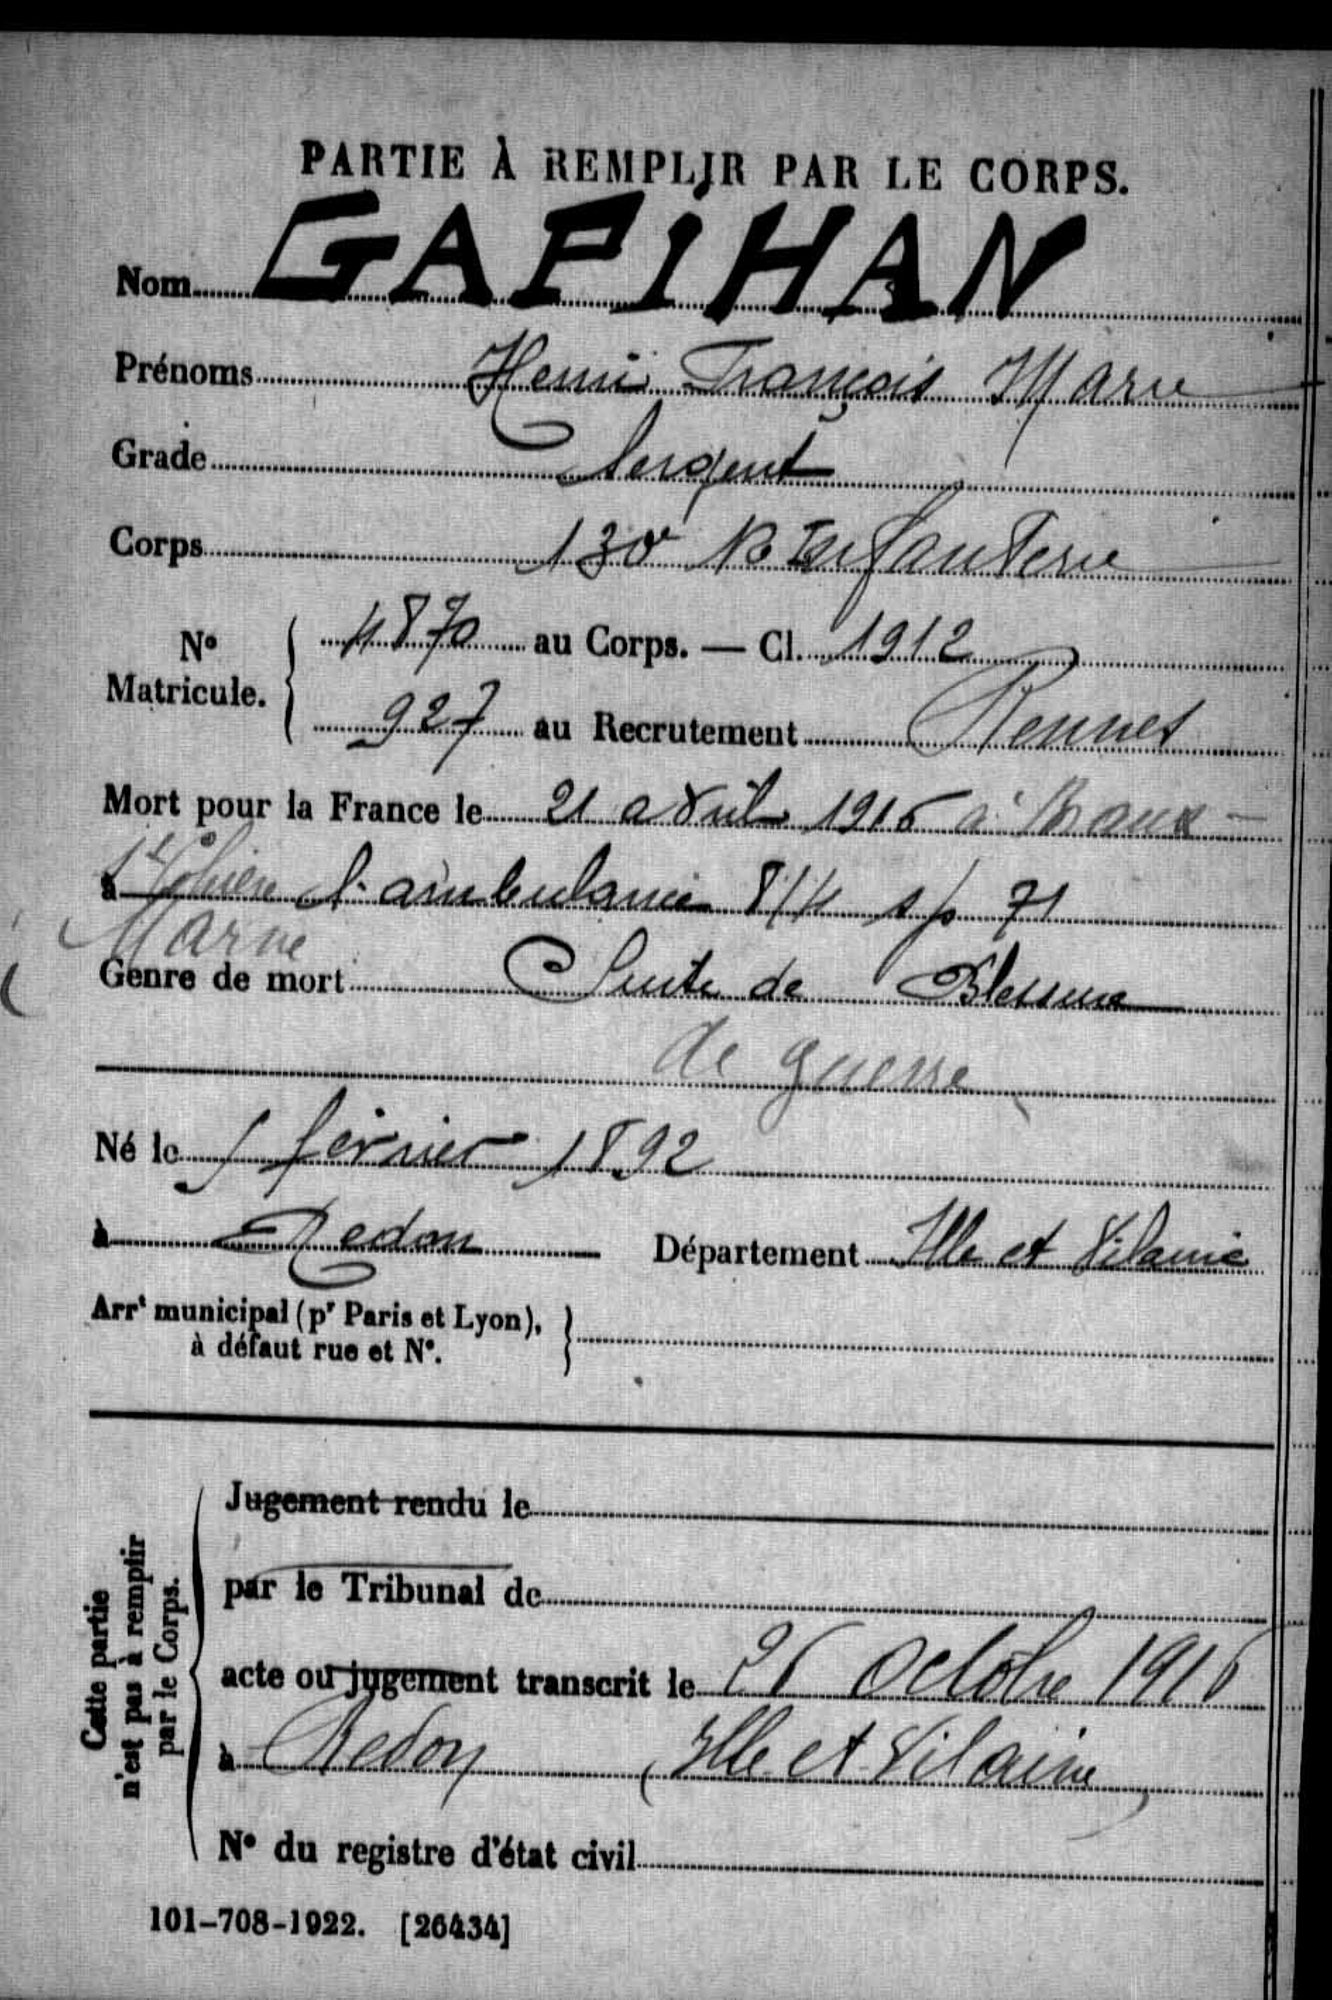 PARTIE À REMPLIR PAR LE CORPS.
Nom GAPIHAN
Prénoms Henri François Marie
Grade Sergent
Corps 130e R. Infanterie
No Matricule. 4870 au Corps. — Cl. 1912
927 au Recrutement Rennes
Mort pour la France le 21 avril 1916 à Braux-
à Ste Cohière l'ambulance 8/4 s/p 71
Marne
Genre de mort Suite de Blessure
de guerre
Né le 5 février 1892
à Redon Département Ille et Vilaine
Arrt municipal (pr Paris et Lyon),
à défaut rue et No.
Cette partie
n'est pas à remplir
par le Corps.
Jugement rendu le
par le Tribunal de
acte ou jugement transcrit le 26 Octobre 1916
à Redon (Ille et Vilaine)
No du registre d'état civil
101-708-1922. [26434]